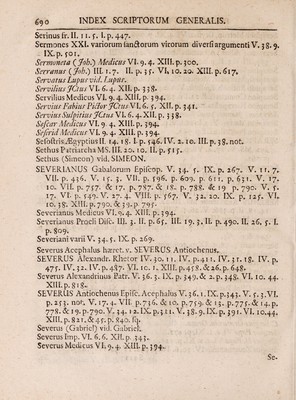 690 INDEX SCRIPTORUM GENERALIS.
Serinus fr. II. 11. 5. I. p. 447.
Sermones XXI. variorum sanctorum virorum diversi argumenti V. 38. 9.
IX. p. 501.
Sermoneta (Joh.) Medicus VI. 9. 4. XIII. p. 300.
Serranus (Joh.) III. 1. 7. II. p. 35. VI. 10. 20. XIII. p. 617.
Servatus Lupus vid. Lupus.
Servilius JCtus VI. 6. 4. XII. p. 338.
Servilius Medicus VI. 9. 4. XIII. p. 394.
Servius Fabius Pictor JCtus VI. 6. 5. XII. p. 341.
Servius Sulpitius JCtus VI. 6. 4. XII. p. 338.
Sescar Medicus VI. 9. 4. XIII. p. 394.
Seserid Medicus VI. 9. 4. XIII. p. 394.
Sesostris, Ægyptius II. 14. 18. I. p. 546. IV. 2. 10. III. p. 38. not.
Sethus Patriarcha MS. III. 20. 10. II. p. 515.
Sethus (Simeon) vid. SIMEON.
SEVERIANUS Gabalorum Episcop. V. 34. 5. IX. p. 267. V. 11. 7.
VII. p. 436. V. 15. 3. VII. p. 596. p. 609. p. 611. p. 631. V. 17.
10. VII. p. 757. & 17. p. 787. & 18. p. 788. & 19 p. 790. V. 5.
17. VI. p. 549. V. 27. 4. VIII. p. 567. V. 32. 20. IX. p. 125. VI.
10. 38. XIII. p. 790. & 39. p. 795.
Severianus Medicus VI. 9. 4. XIII. p. 394.
Severianus Procli Disc. III. 3. II. p. 65. III. 19. 3. II. p. 490. II. 26. 5. I.
p. 809.
Severiani varii V. 34. 5. IX. p. 269.
Severus Acephalus hæret. v. SEVERUS Antiochenus.
SEVERUS Alexandr. Rhetor IV. 30. 11. IV. p. 411. IV. 31. 18. IV. p.
475. IV. 32. IV. p. 487. VI. 10. 1. XIII. p. 458. & 26. p. 648.
Severus Alexandrinus Patr. V. 36. 3. IX p. 349. & 2. p. 348. VI. 10. 44.
XIII. p. 818.
SEVERUS Antiochenus Episc. Acephalus V. 36. 1. IX. p. 343. V. 5. 3. VI.
p. 253. not. V. 17. 4. VII. p. 736. & 10. p. 759. & 13. p. 775. & 14. p.
778. & 19. p. 790. V. 34. 12. IX. p. 311. V. 38. 9. IX. p. 391. VI. 10. 44.
XIII. p. 821. & 45. p. 840. sq.
Severus (Gabriel) vid. Gabriel.
Severus Imp. VI. 6. 6. XII. p. 343.
Severus Medicus VI. 9. 4. XIII. p. 394.
Se-